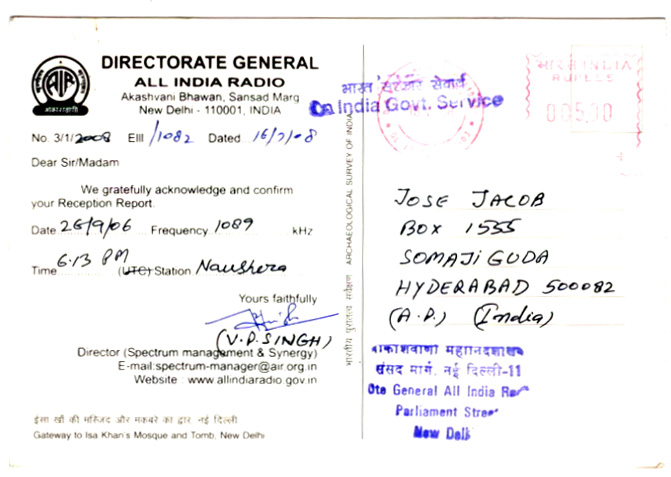 DIRECTORATE GENERAL
ALL INDIA RADIO
Akashvani Bhawan, Sansad Marg
New Delhi - 110001, INDIA
AIR
No. 3/1/2008 EIII /1082 Dated 16/7/08
Dear Sir/Madam
We gratefully acknowledge and confirm
your Reception Report.
Date 26/9/06 Frequency 1089 kHz
Time 6.13 PM (UTC) Station Naushera
Yours faithfully
(V.P.SINGH)
Director (Spectrum management & Synergy)
E-mail:spectrum-manager@air.org.in
Website : www.allindiaradio.gov.in
ईसा खाँ की मस्जिद और मकबरे का द्वार नई दिल्ली
Gateway to Isa Khan's Mosque and Tomb, New Delhi
भारतीय पुरातत्व सर्वेक्षण ARCHAEOLOGICAL SURVEY OF INDIA
भारत सरकार सेवार्थ
On India Govt. Service
भारत INDIA
RUPEES
005.00
JOSE JACOB
BOX 1555
SOMAJIGUDA
HYDERABAD 500082
(A.P.) (India)
संसद मार्ग, नई दिल्ली-11
Dte General All India
Parliament Street
New Delh